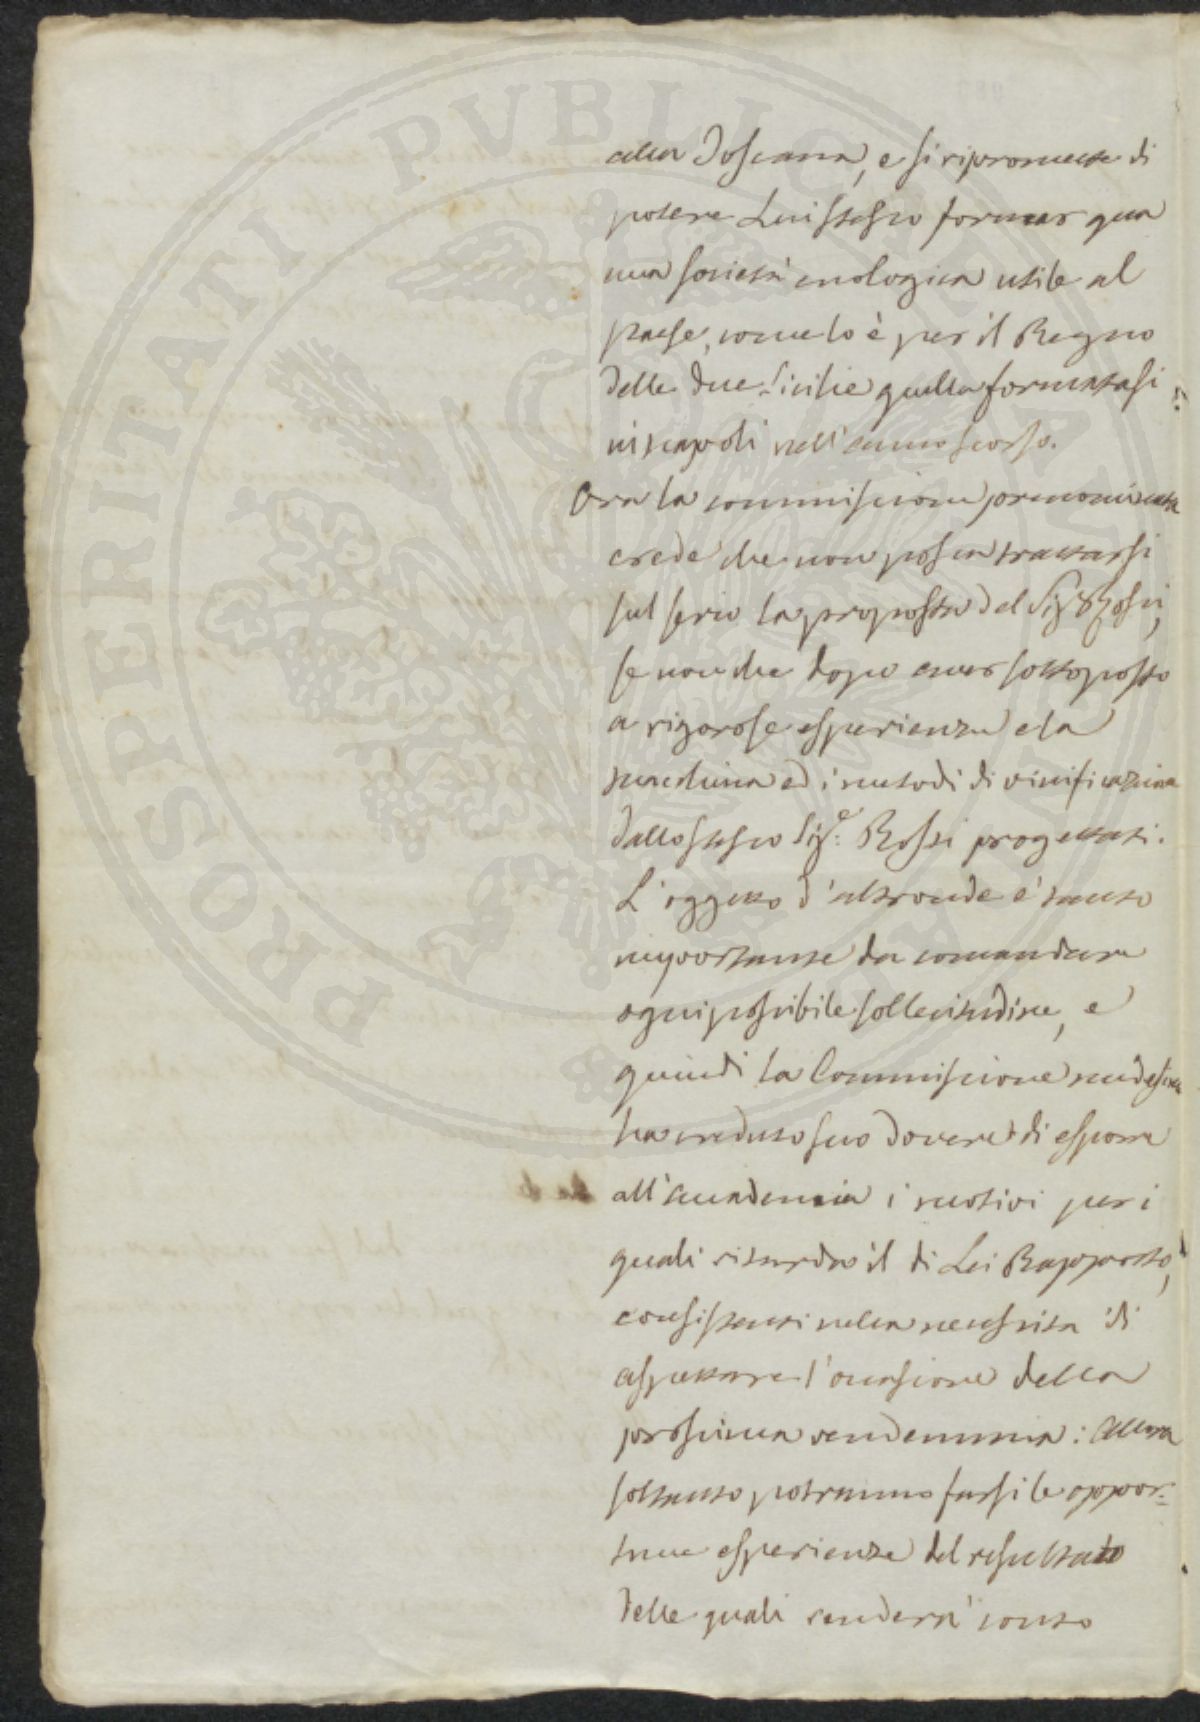 PROSPERITATI PUBLICAE AUGENDAE
alla Toscana, e si ripromette di
potere Lui stesso formar qua
una società enologica utile al
paese, come lo è per il Regno
delle due Sicilie quella formatasi
in Napoli nell'anno scorso.
Ora la commissione prenominata
crede che non possa trattarsi
sul serio la proposta del Sig.r Rossi,
se non che dopo aver sottoposto
a rigorose esperienze e la
macchina ed i metodi di vinificazione
dallo stesso Sig.e Rossi progettati.
L'oggetto d'altronde è tanto
importante da comandare
ogni possibile sollecitudine, e
quindi la Commissione medesima
ha creduto suo dovere di esporre
all'accademia i motivi per i
quali ritardò il di Lei Rapporto,
consistenti nella necessità di
aspettare l'occasione della
prossima vendemmia: Allora
soltanto potranno farsi le oppor=
tune esperienze del resultato
delle quali renderà conto